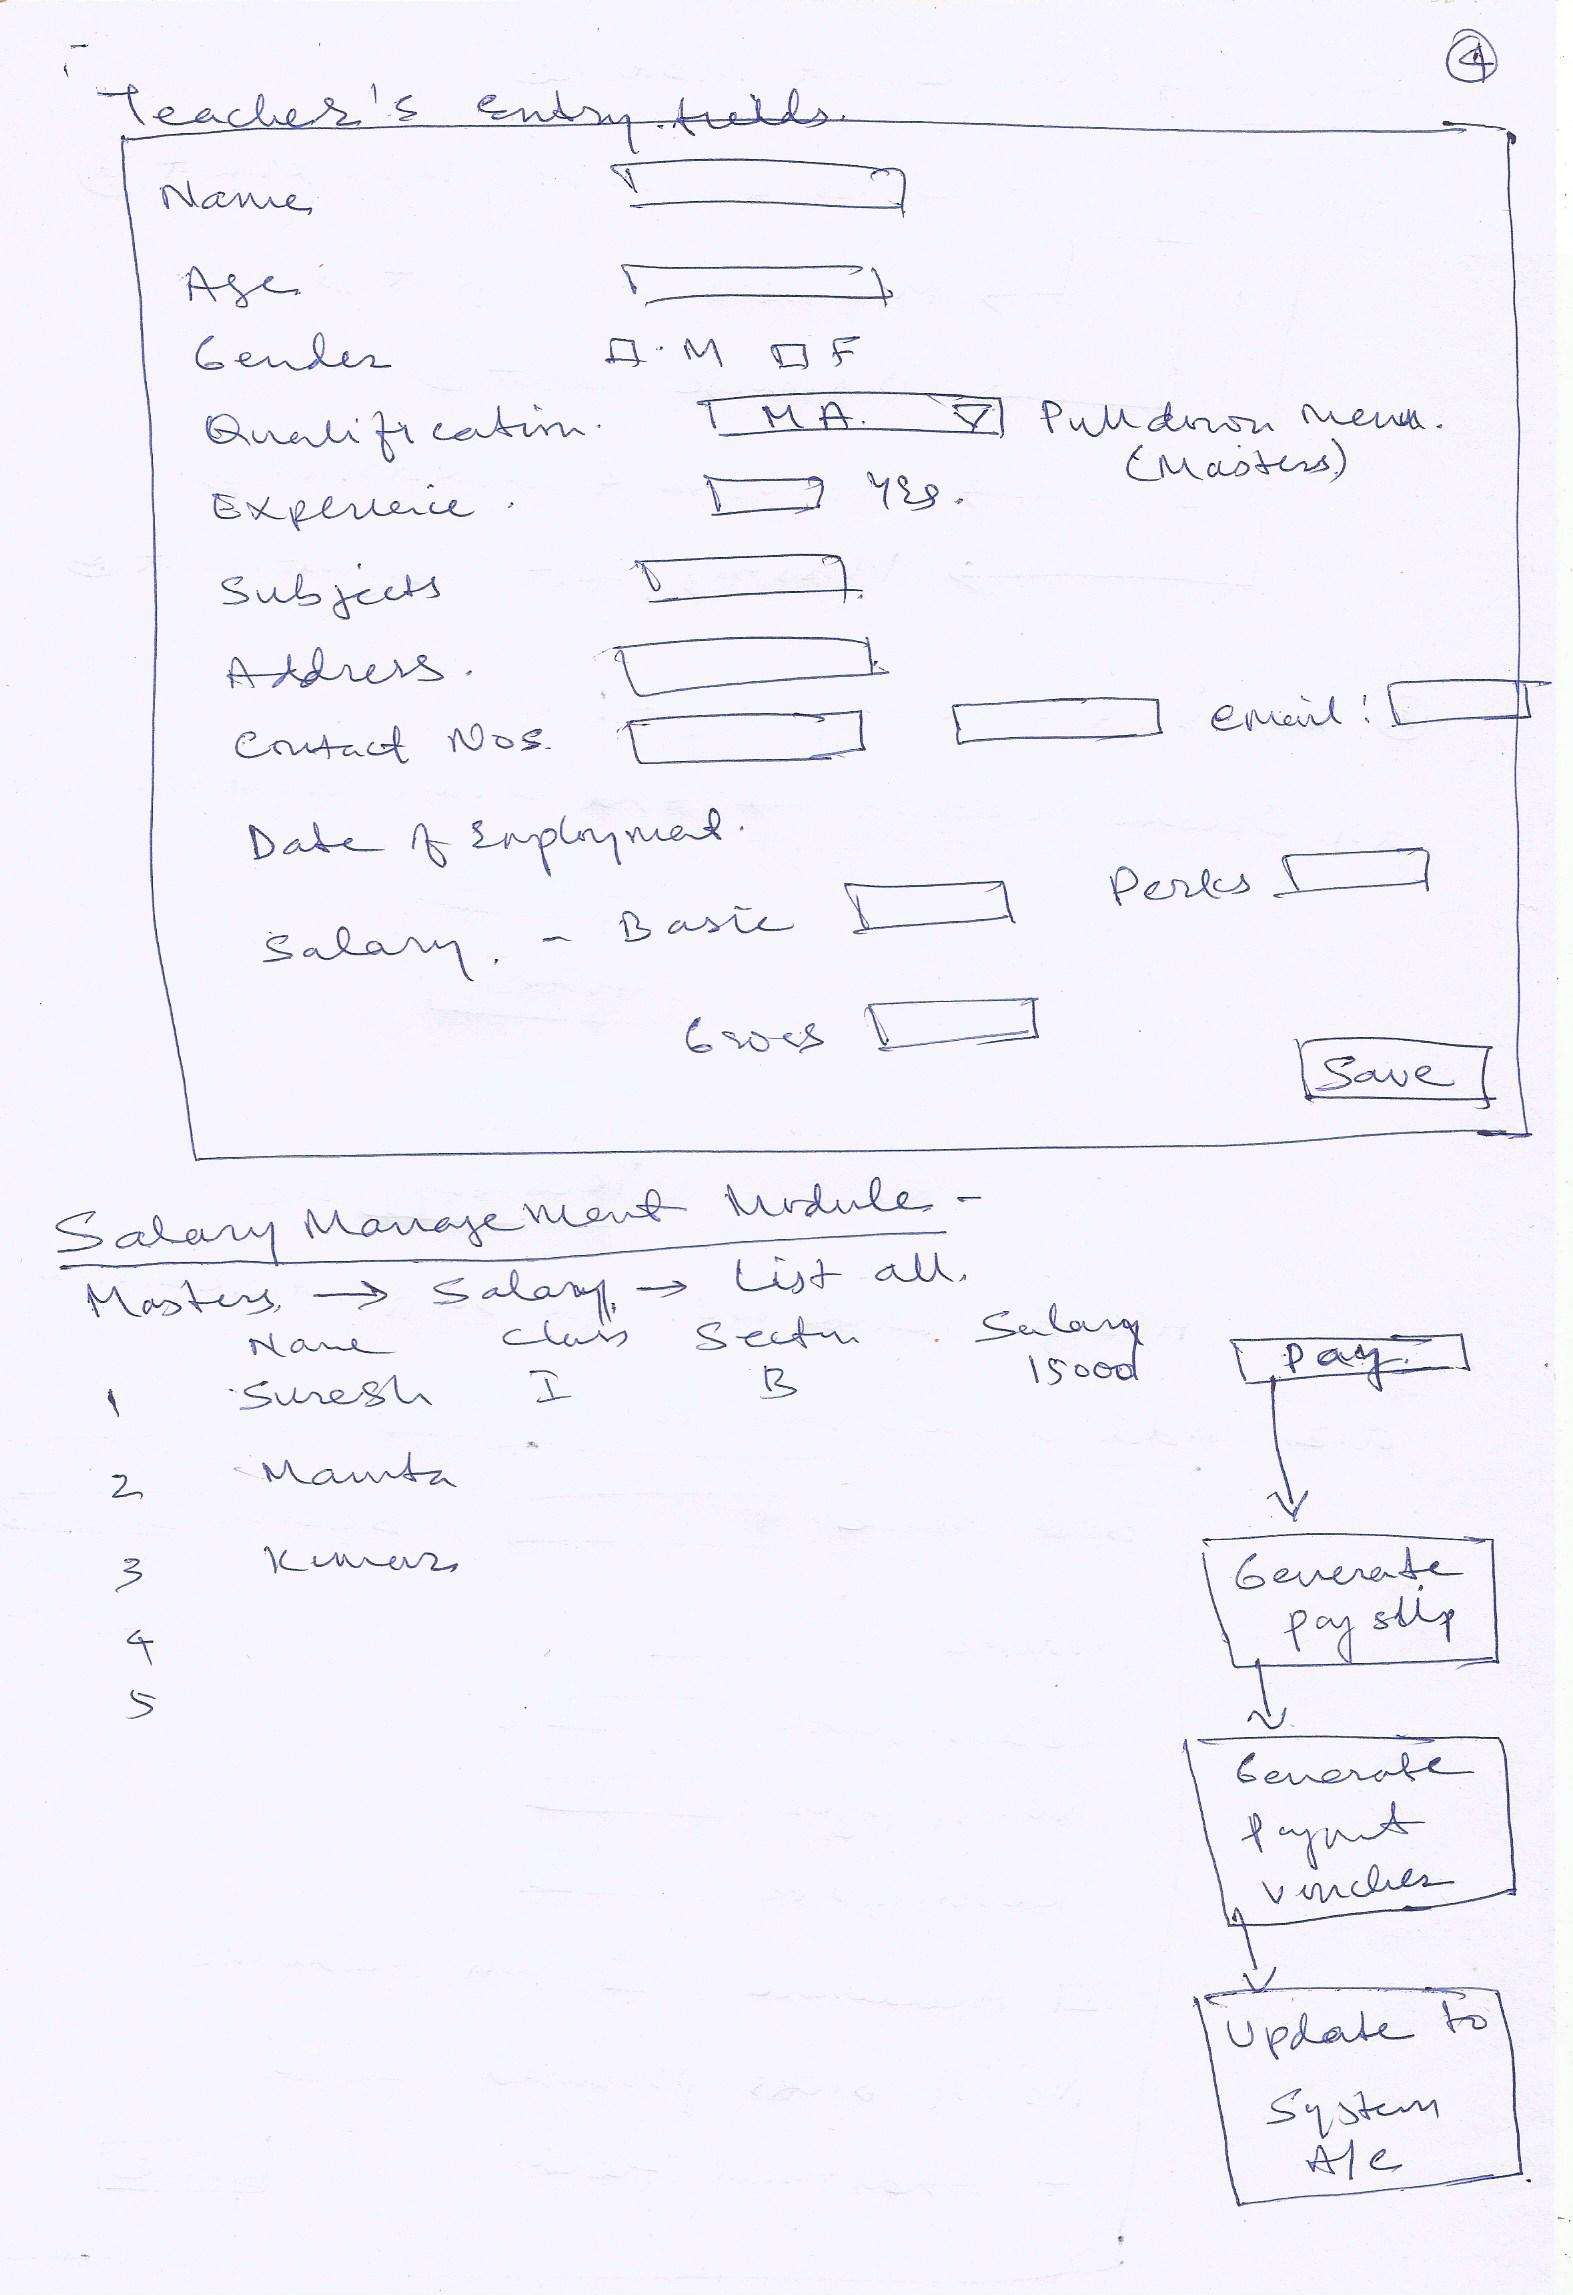 4
Teacher's Entry fields.
Name
Age
Gender M F
Qualification. MA. Pulldown menu.
(Masters)
Experience. Yrs.
Subjects
Address.
Contact Nos. email:
Date of Employment.
Salary. - Basic Perks
Gross
Save
Salary Management Module -
Masters → Salary → List all.
Name Class Section Salary
1 Suresh I B 15000 Pay.
2 Mamta
3 Kumar
4
5
Generate
pay slip
Generate
Paymt
Voucher
Update to
System
A/c